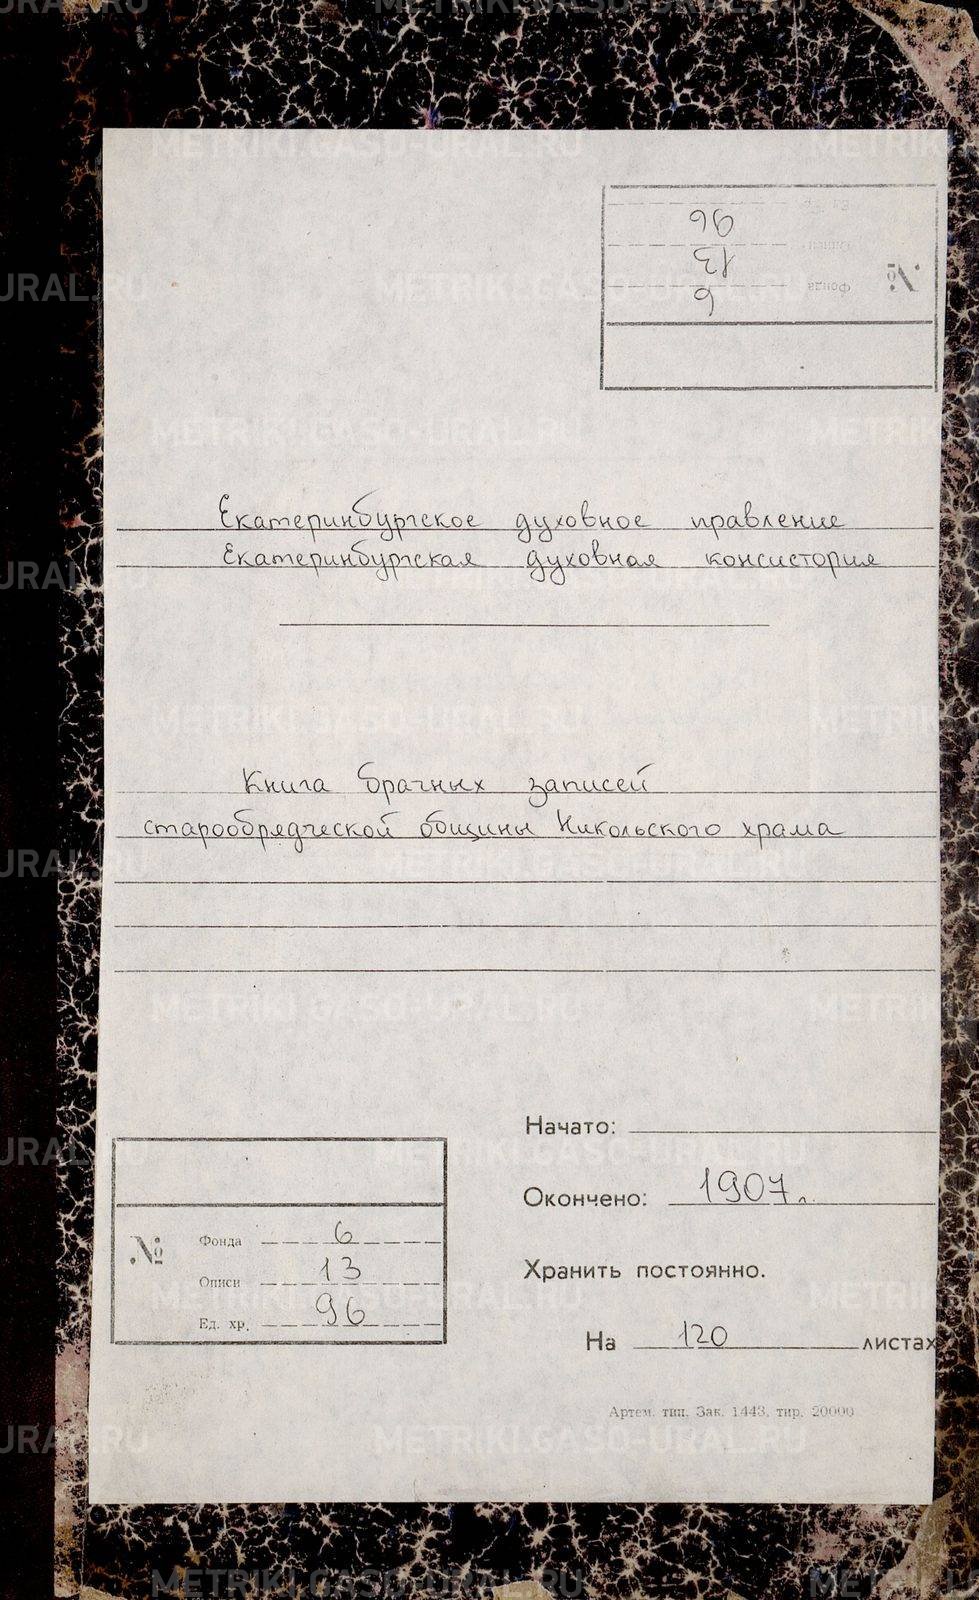 Ед. хр. 96
Описи 13
№ Фонда 6
Екатеринбургское духовное правление
Екатеринбургская духовная консистория
Книга брачных записей
старообрядческой общины Никольского храма
Начато:
Окончено: 1907г.
Хранить постоянно.
На 120 листах
№ Фонда 6
Описи 13
Ед. хр. 96
Артем. тип. Зак. 1443, тир. 20000
METRIKI.GASO-URAL.RU